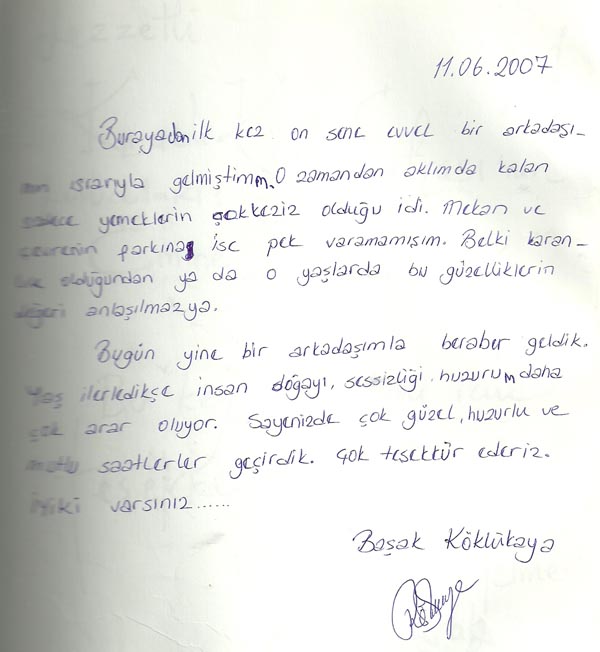 11.06.2007
Burayadan ilk kez on sene evvel bir arkadaşı-
mın ısrarıyla gelmiştimm. O zamandan aklımda kalan
sadece yemeklerin çok leziz olduğu idi. Mekan ve
çevrenin farkına ise pek varamamışım. Belki karan-
lık olduğundan ya da o yaşlarda bu güzelliklerin
değeri anlaşılmaz ya.
Bugün yine bir arkadaşımla beraber geldik.
Yaş ilerledikçe insan doğayı, sessizliği, huzurum daha
çok arar oluyor. Sayenizde çok güzel, huzurlu ve
mutlu saatlerler geçirdik. Çok teşekkür ederiz.
İyiki varsınız......
Başak Köklükaya